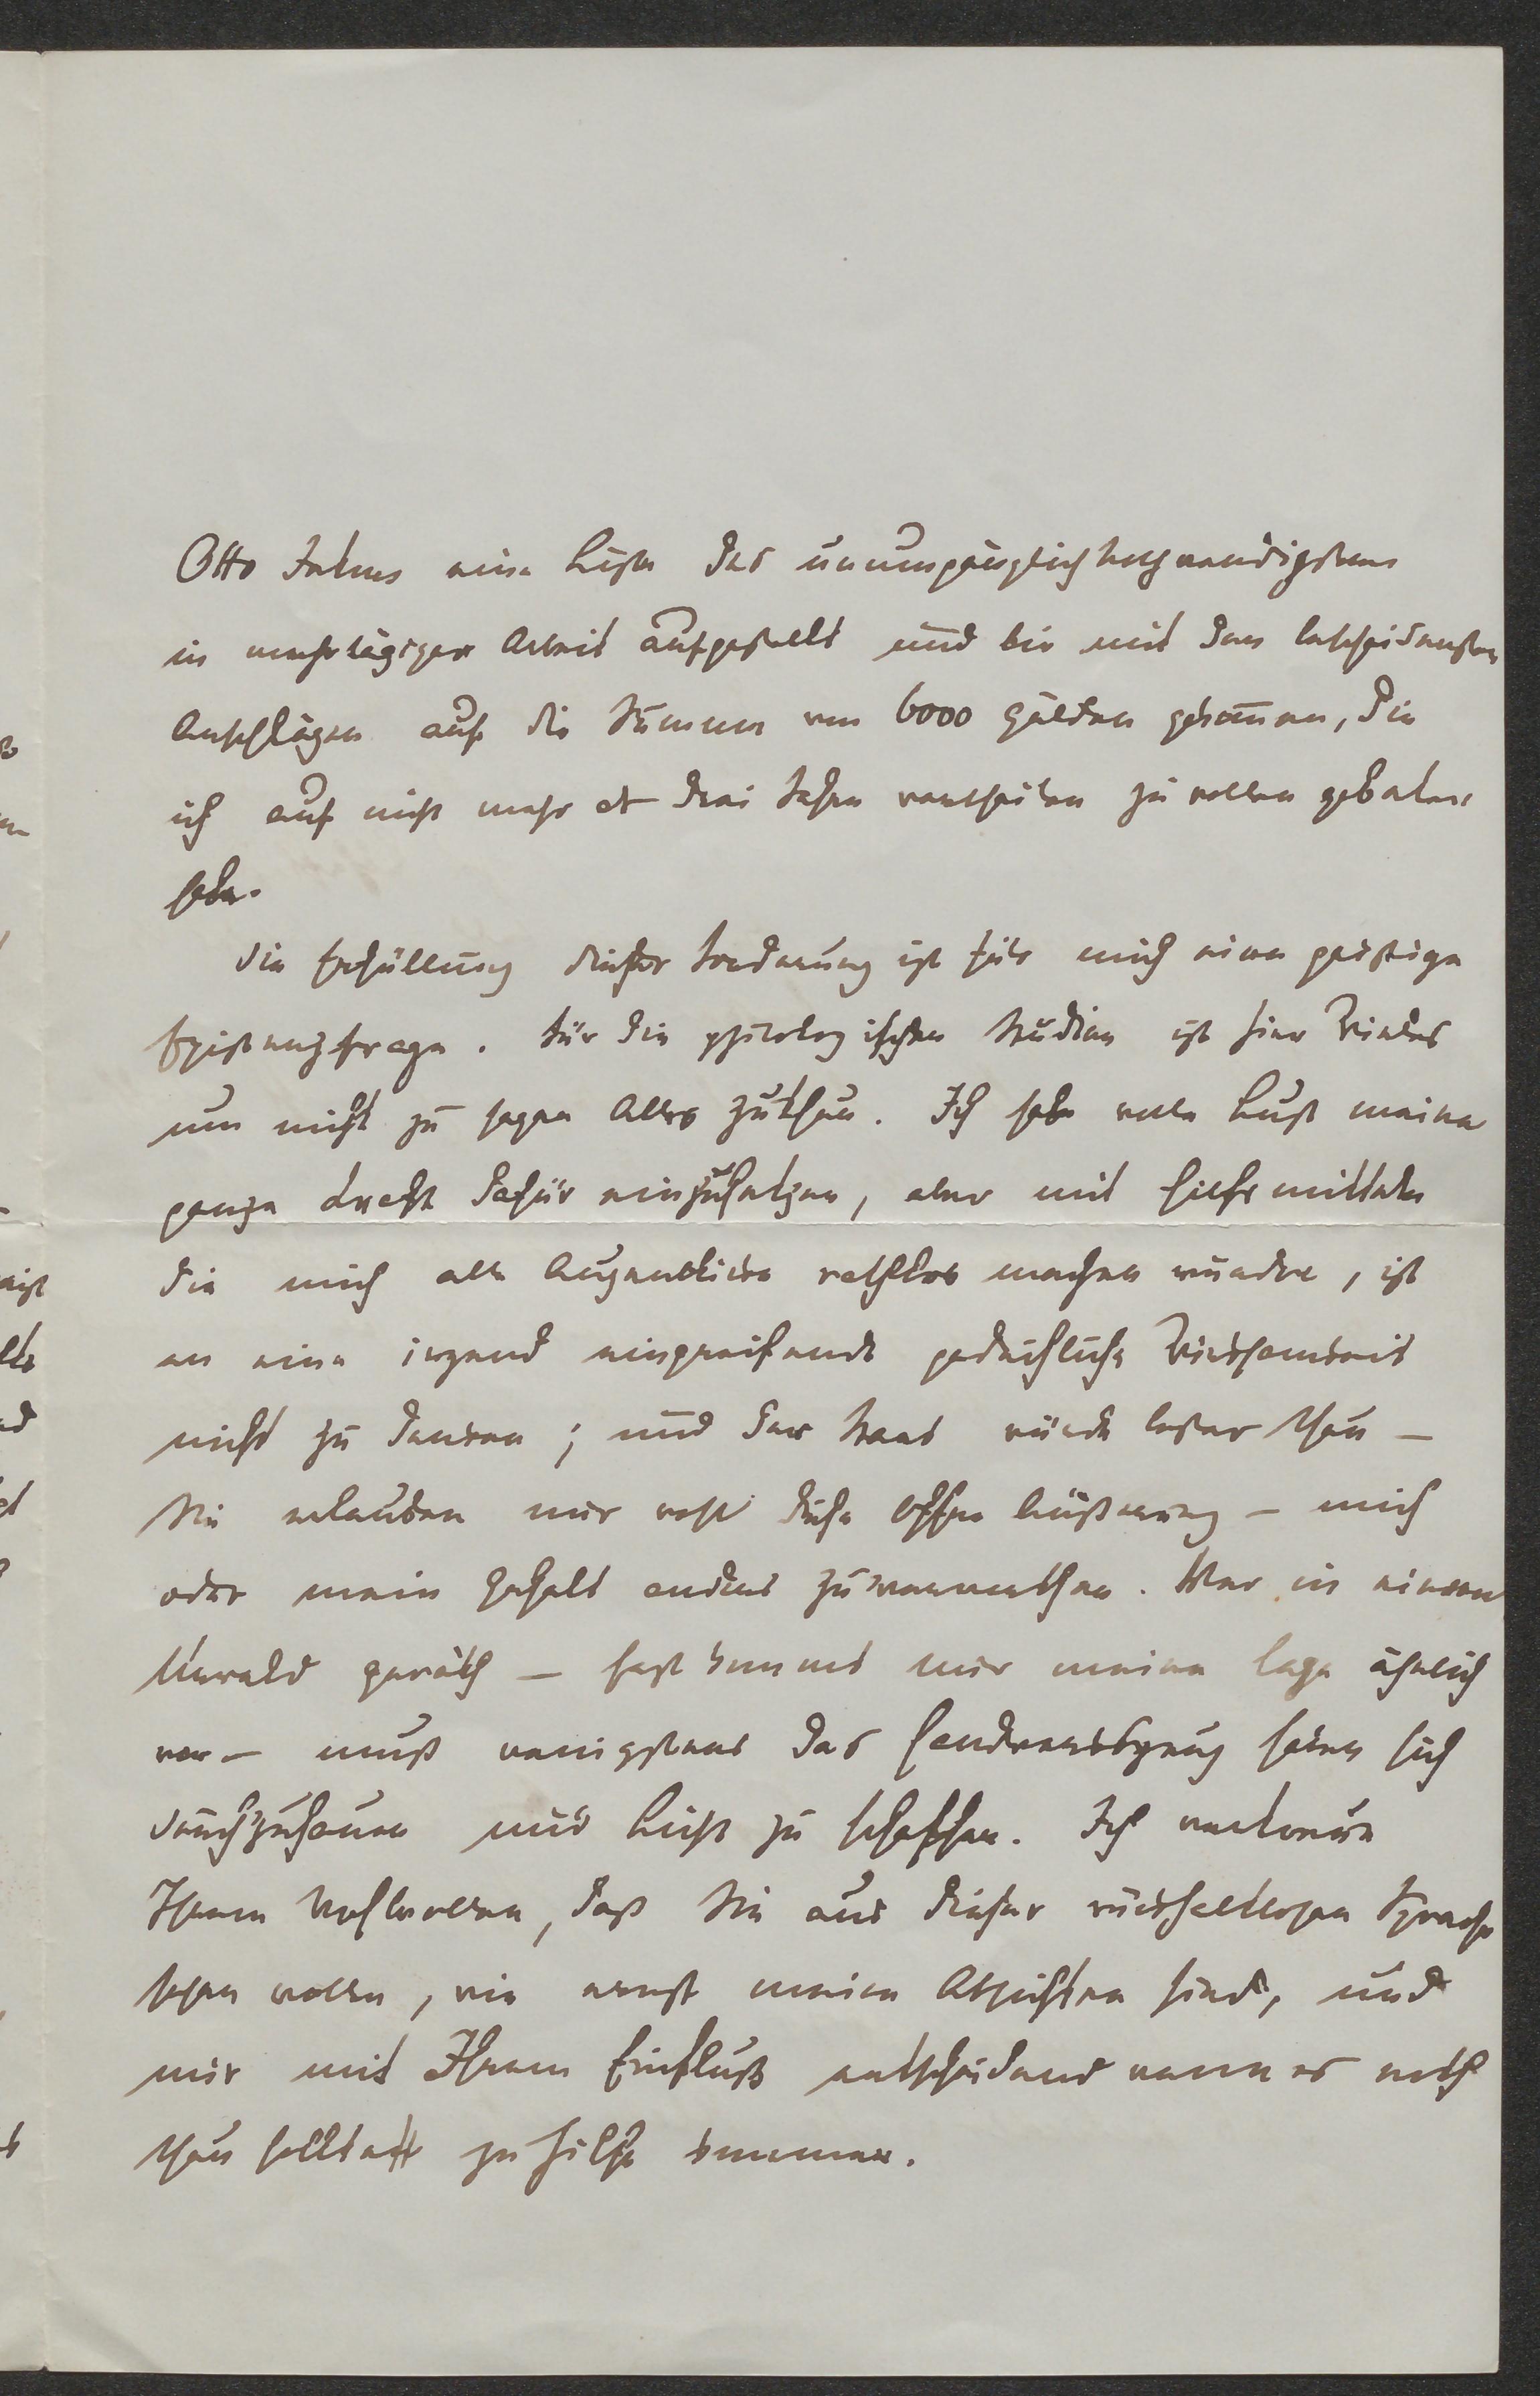 Otto Jahns eine Liste des unumgänglich nothwendigsten
in mehrtägiger Arbeit aufgestellt und bin mit den bescheidensten
Anschlägen auf die Summe von 6000 Gulden gekom̅en, die
ich auf nicht mehr als drei Jahre vertheilen zu wollen gebeten
habe.
Die Erfüllung dieser Forderung ist für mich eine geistige
Existenzfrage. Für die philologischen Studien ist hier Vieles
um nicht zu sagen Alles zu thun. Ich habe volle Lust meine
ganze Kraft dafür einzusetzen, aber mit Hilfsmitteln
die mich alle Augenblicke rathlos machen würden, ist
an eine irgend eingreifende gedeihliche Wirksamkeit
nicht zu denken; und der Staat würde besser thun –
Sie erlauben mir wohl diese offne Äußerung – mich
oder mein Gehalt anders zu verwenden. Wer in einen
Urwald geräth – fast kommt mir meine Lage ähnlich
vor – muß wenigstens das Handwerkszeug haben sich
durchzuhauen und Licht zu schaffen. Ich vertraue
Ihrem Wohlwollen, daß Sie aus dieser rückhaltlosen Sprache
sehen wollen, wie ernst meine Absichten sind, und
mir mit Ihrem Einfluß entscheidend wenn es noth
thun sollte zu Hilfe kommen.